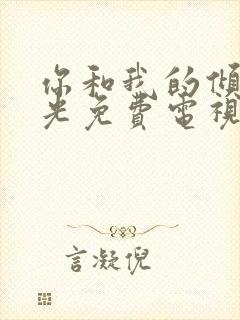 你和我的傾
光免費電視
言凝倪